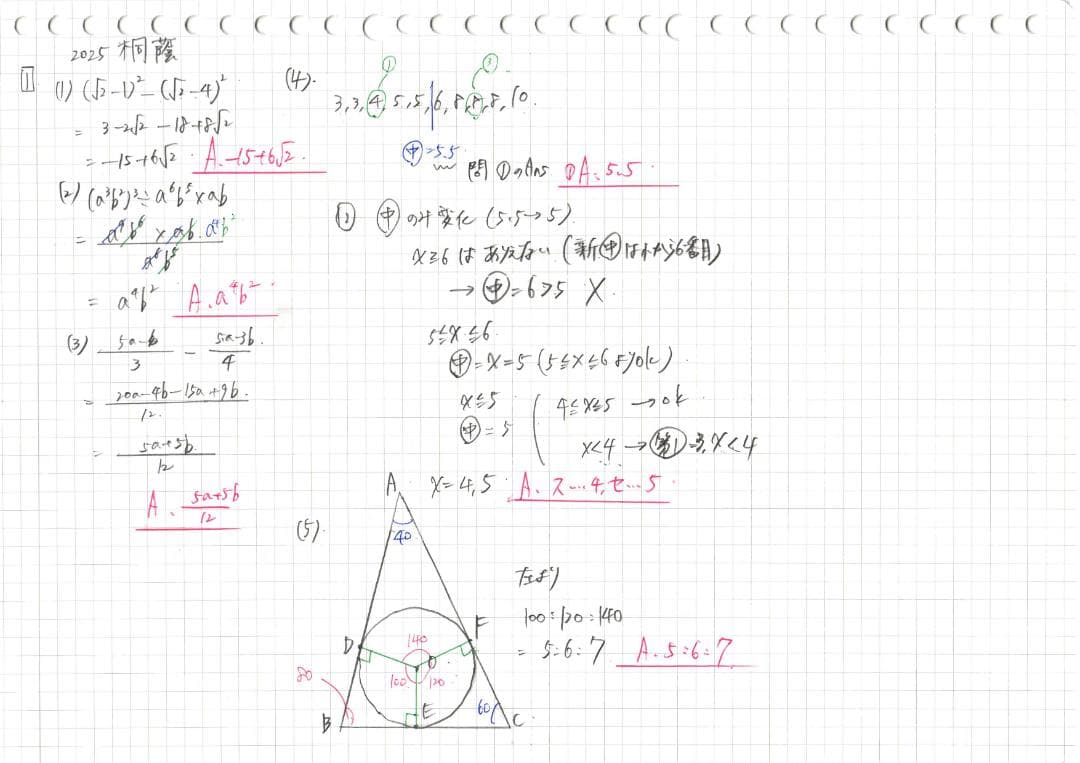 2025 桐蔭
1
(1) (√2-1)² - (√2-4)²
= 3-2√2 -18+8√2
= -15+6√2. A. -15+6√2.
(2) (a³b²)³÷a⁶b⁵×ab
= a⁹b⁶ × ab. a⁴b²
a⁶b⁵
= a⁴b² A. a⁴b²
(3) 5a-b/3 - 5a-3b/4
= 20a-4b-15a+9b/12
= 5a+5b/12
A. 5a+5b/12
(4).
① ③
3, 3, 4, 5, 5, | 6, 8, 8, 8, 10.
中=5.5
問①のAns ①A. 5.5
② 中のみ変化 (5.5→5)
x≧6 はありえない (新中は下から6番目)
→ 中=6>5 X
5≦x≦6
中=x=5 (5≦x≦6よりok)
x≦5
中=5
4≦x≦5 → ok
x<4 → 第1=3, x<4
x=4,5 A. ス…4, セ…5
(5).
A
40
D
F
140
O
100
120
80
B
E
60
C
左より
100:120:140
= 5:6:7 A. 5:6:7